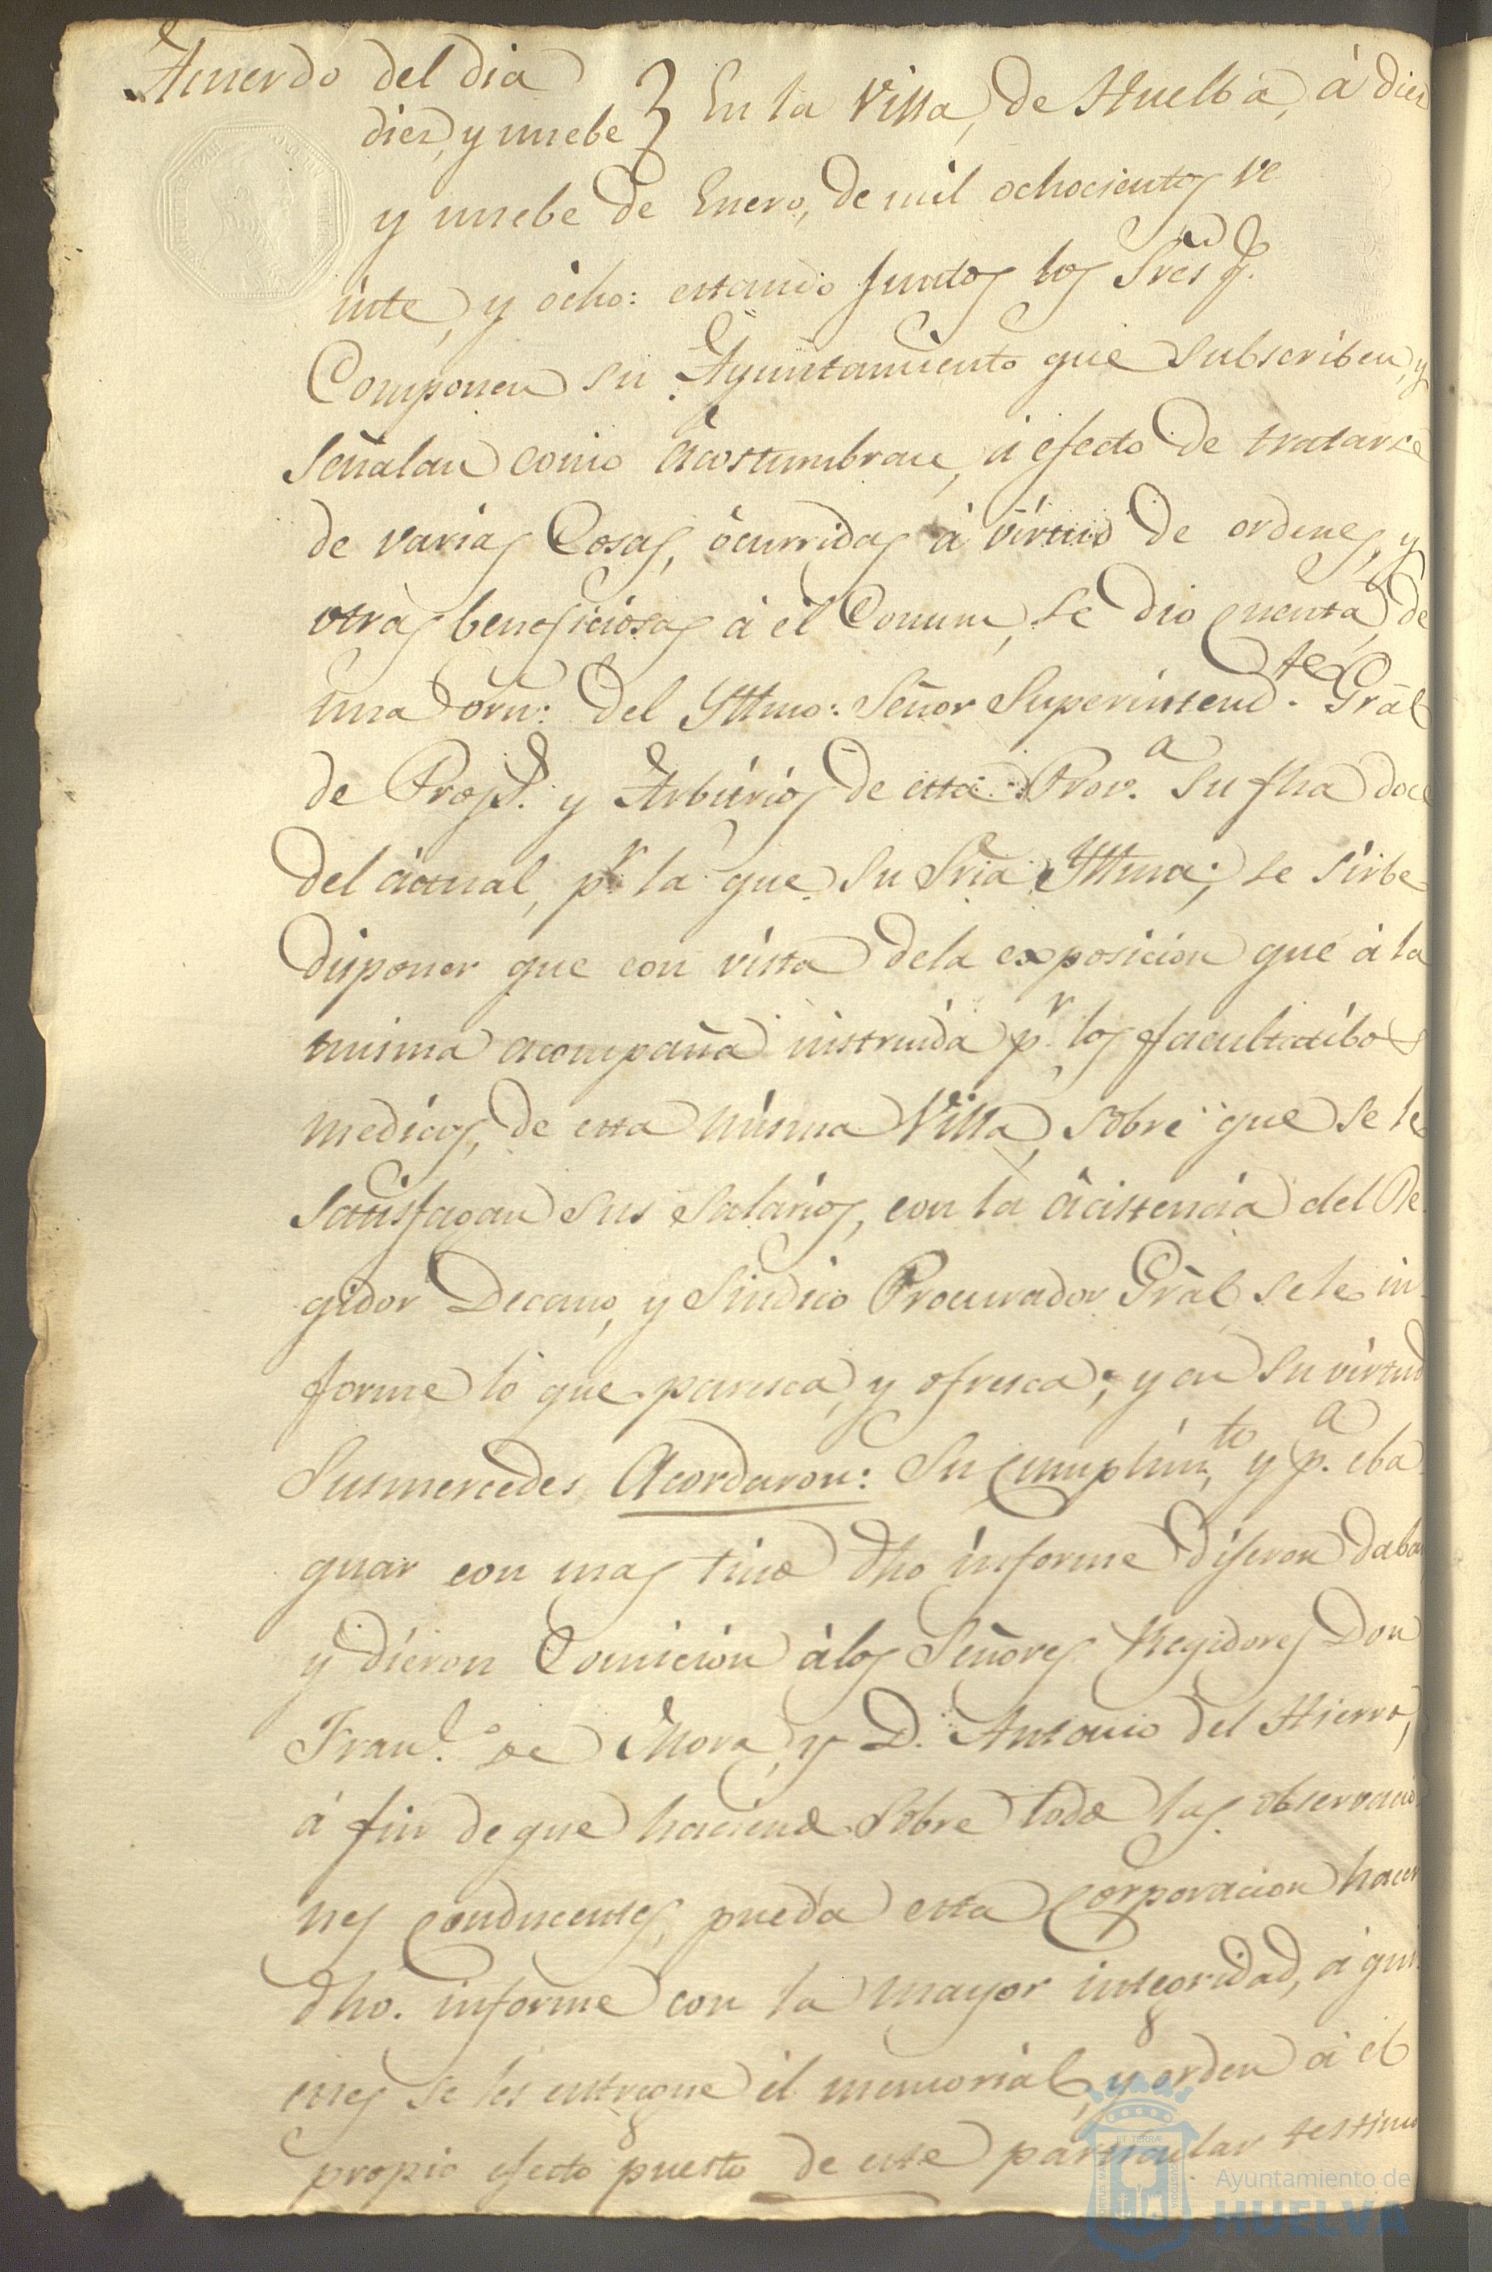 Acuerdo del dia
diez, y nuebe } En la Villa, de Huelba, à diez
y nuebe de Enero, de mil ochocientos ve
inte, y òcho: estando Juntos los Sres q.e
Componen su Ayuntamiento que Subscriben, y
Señalan como àcostumbran, à efecto de tratarse
de varias Cosas, òcurridas à virtud de ordenes, y
otras beneficiosas à èl Comun, se dio cuenta, de
una orn: del Yltmo: Señor Superintend.te Gral
de Prop.s y Arbitrios de esta Prov.a su fha doce
del àctual, p.r la que su Sria Yltma; se sirbe
disponer que con vista dela exposicion que à la
misma acompaña instruida p.r los facultatibos
medicos, de esta misma Villa, sobre que se le
satisfagan sus salarios, con la àcistencia del Re
gidor Decano, y Sindico Procurador Gral, se le in
forme lo que paresca, y ofresca; y en su virtud
Susmercedes Acordaron: Su cumplim.to, y p.a eba
guar con mas tino dho informe dijeron daban
y dieron Comicion àlos Señores Regidores Don
Fran.co de Mora, y D. Antonio del Hierro,
à fin de que haciendo sobre todo las observacio
nes conducentes, pueda esta Corporacion hacer
dho. informe con la mayor integridad, à qui
enes se les entregue el memorial, y orden à el
propio efecto puesto de este particular testimo
Ayuntamiento de
HUELVA